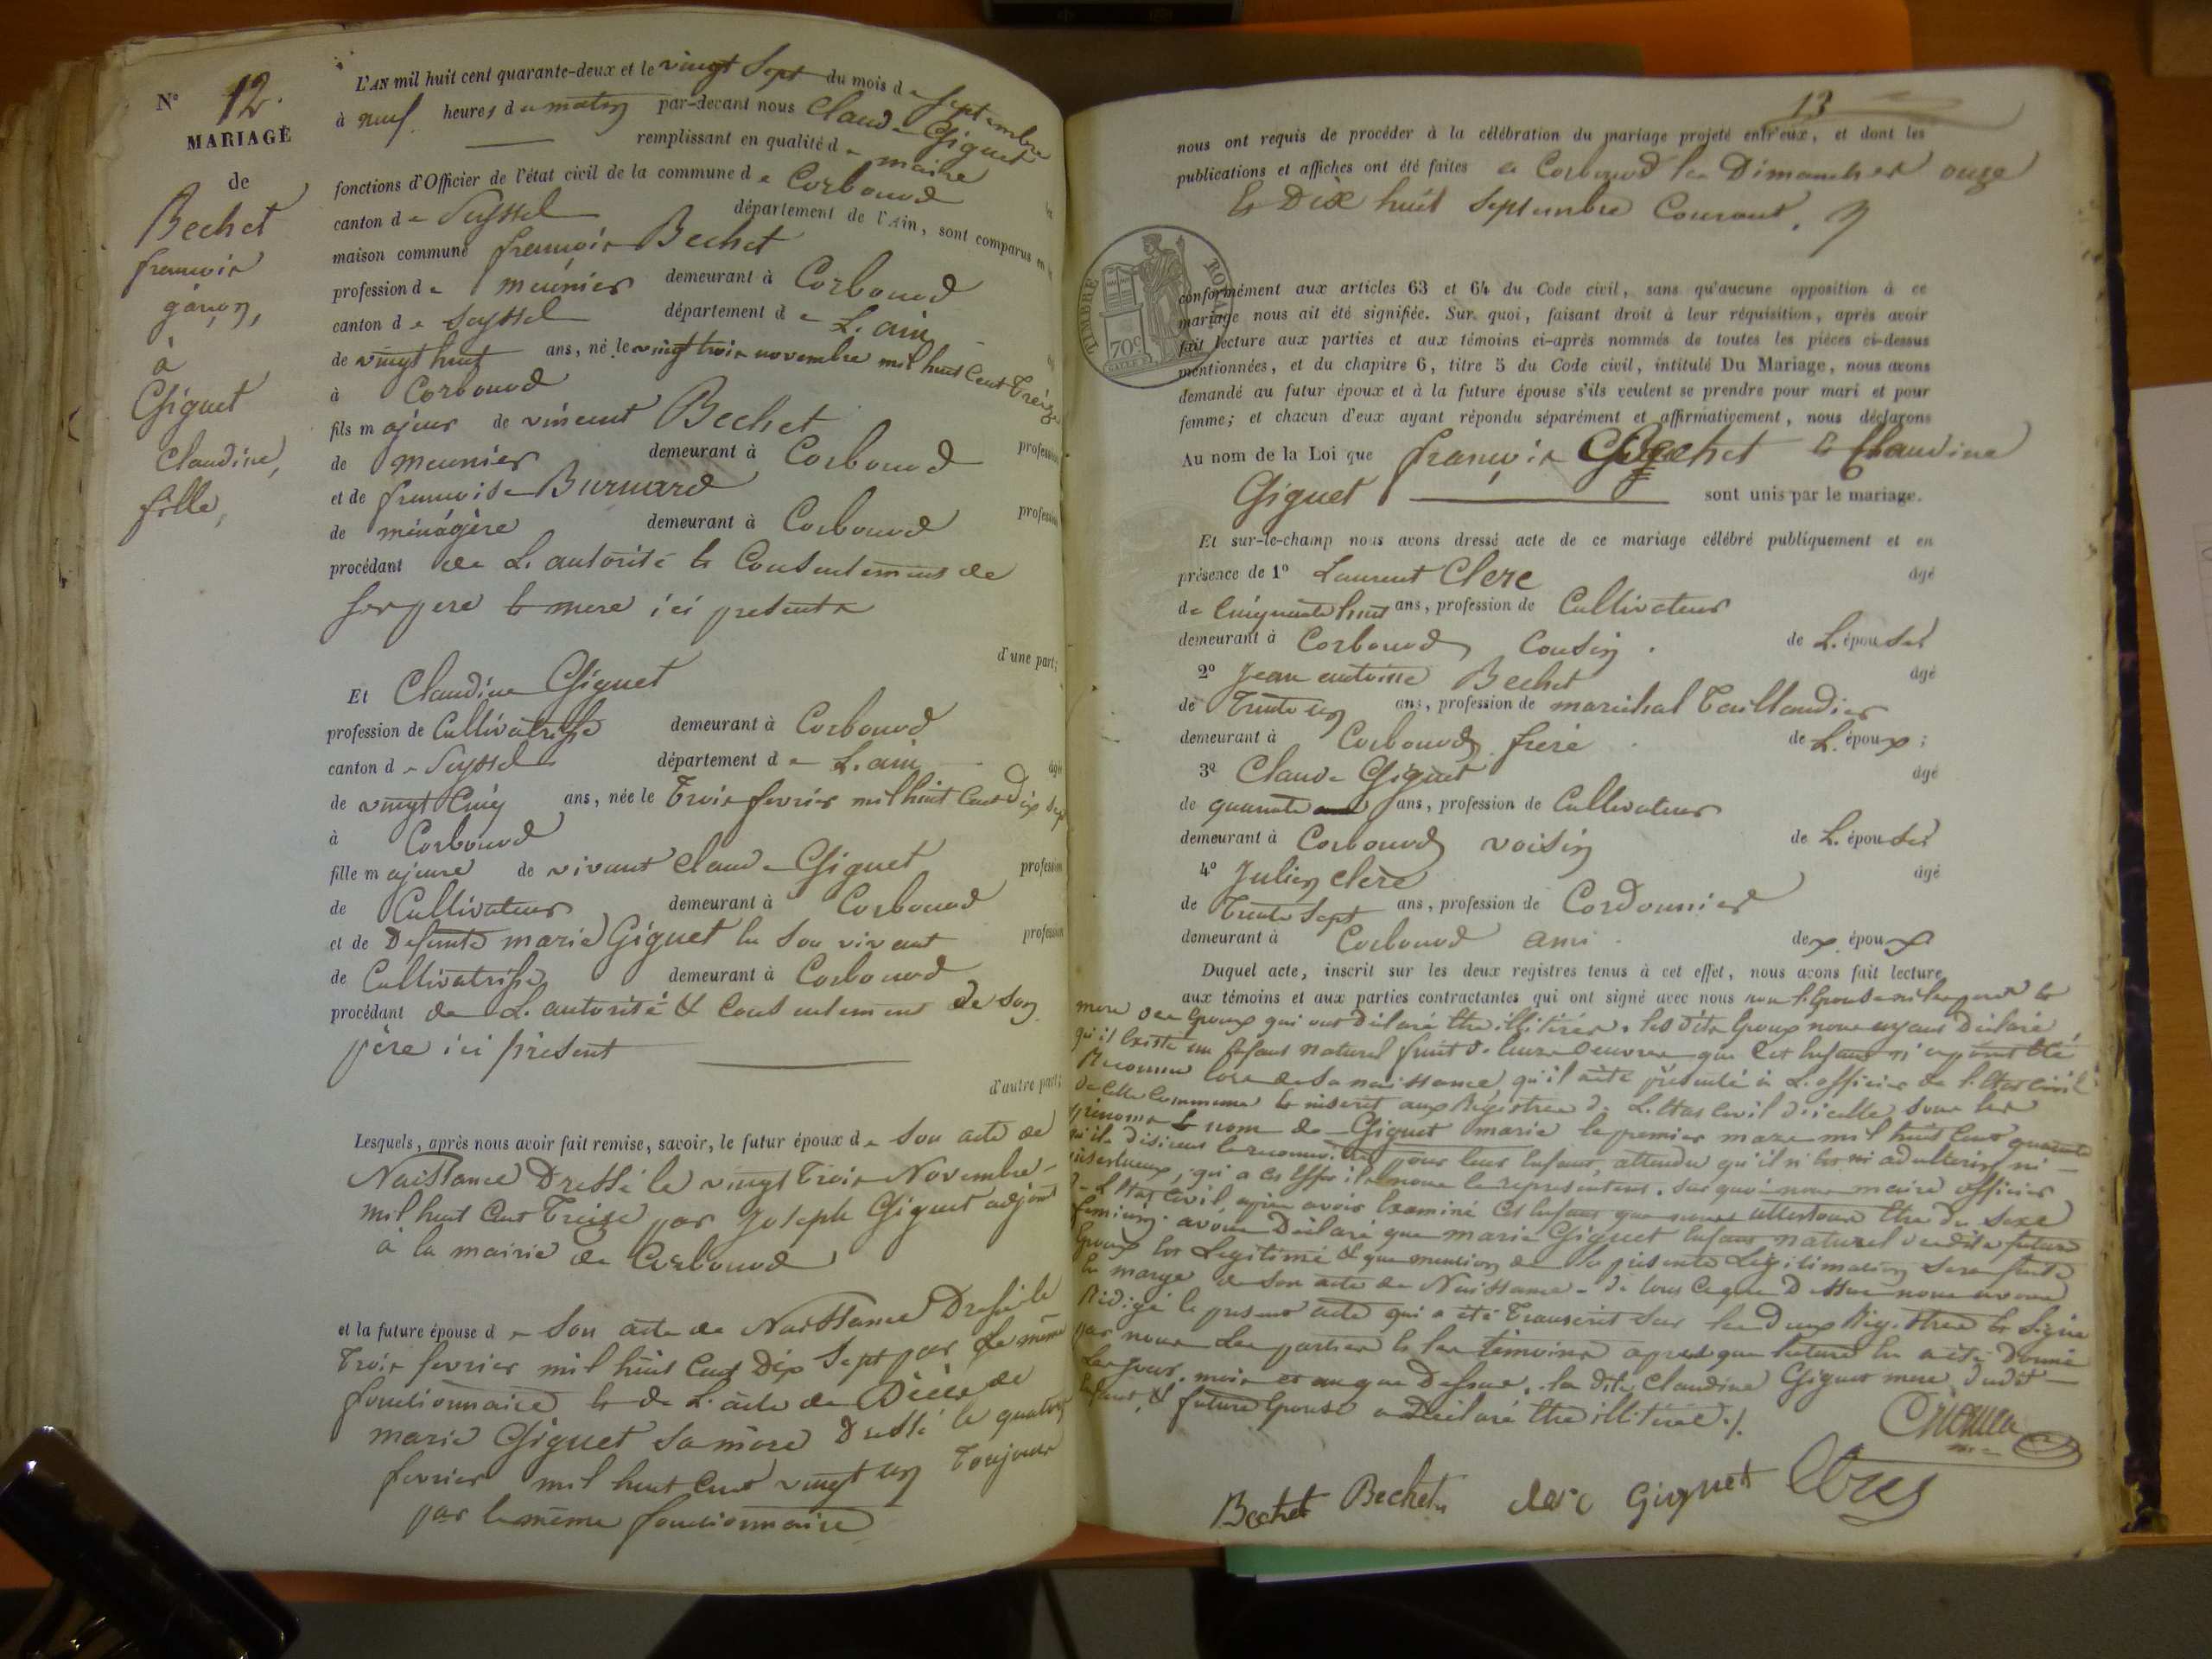 N° 12.
MARIAGE
de
Bechet
françois
garçon,
à
Giguet
Claudine,
fille,
L'AN mil huit cent quarante-deux et le vingt Sept du mois de Septembre
à neuf heures du matin par-devant nous Claude Giguet
remplissant en qualité de maire
fonctions d'Officier de l'état civil de la commune de Corbonod
canton de Seyssel département de l'Ain, sont comparus en la
maison commune françois Bechet
profession de meunier demeurant à Corbonod
canton de Seyssel département de L'ain
de vingt huit ans, né le vingt trois novembre mil huit Cent Treize
à Corbonod
fils majeur de vincent Bechet profession
de meunier demeurant à Corbonod
et de françoise Burnard profession
de ménagère demeurant à Corbonod
procédant de L'autorité et Consentement de
ses pere et mere ici presents
d'une part;
Et Claudine Giguet
profession de Cultivatrisse demeurant à Corbonod
canton de Seyssel département de L'ain âgée
de vingt Cinq ans, née le Trois fevrier mil huit Cent Dix Sept
à Corbonod
fille majeure de vivant Claude Giguet profession
de Cultivateur demeurant à Corbonod
et de Defunte marie Giguet en Son vivant profession
de Cultivatrisse demeurant à Corbonod
procédant de L'autorité & Consentement de Son
père ici présent
d'autre part;
Lesquels, après nous avoir fait remise, savoir, le futur époux de Son acte de
Naissance Dressé le vingt Trois Novembre
mil huit Cent Treize par Joseph Giguet adjoint
à la mairie de Corbonod
et la future épouse de Son acte de Naissance Dressé le
Trois fevrier mil huit Cent Dix Sept par Le même
fonctionnaire et de L'acte de Décès de
marie Giguet Sa mère Dressé le quatorze
fevrier mil huit Cent vingt un Toujours
par le même fonctionnaire
13
nous ont requis de procéder à la célébration du mariage projeté entr'eux, et dont les
publications et affiches ont été faites à Corbonod les Dimanches onze
et Dix huit Septembre Courant.
TIMBRE ROYAL
70c
conformément aux articles 63 et 64 du Code civil, sans qu'aucune opposition à ce
mariage nous ait été signifiée. Sur quoi, faisant droit à leur réquisition, après avoir
fait lecture aux parties et aux témoins ci-après nommés de toutes les pièces ci-dessus
mentionnées, et du chapitre 6, titre 5 du Code civil, intitulé Du Mariage, nous avons
demandé au futur époux et à la future épouse s'ils veulent se prendre pour mari et pour
femme; et chacun d'eux ayant répondu séparément et affirmativement, nous déclarons
Au nom de la Loi que françois Bechet et Claudine
Giguet sont unis par le mariage.
Et sur-le-champ nous avons dressé acte de ce mariage célébré publiquement et en
présence de 1° Laurent Clerc âgé
de Cinquante huit ans, profession de Cultivateur
demeurant à Corbonod Cousin de L'épouse
2° Jean antoine Bechet âgé
de Trente un ans, profession de maréchal Taillandier
demeurant à Corbonod frere de L'époux;
3° Claude Giguet âgé
de quarante ans, profession de Cultivateur
demeurant à Corbonod voisin de L'épouse
4° Julien Clerc âgé
de Trente Sept ans, profession de Cordonnier
demeurant à Corbonod ami des époux
Duquel acte, inscrit sur les deux registres tenus à cet effet, nous avons fait lecture
aux témoins et aux parties contractantes qui ont signé avec nous non L'épouse ni les peres et
mere des Epoux qui ont Déclaré Etre illitirés. Les Dits Epoux nous ayant Déclaré
qu'il Existe un Enfant naturel fruit de leurs oeuvres que Cet Enfant n'a point Eté
Reconnu lors de Sa naissance, qu'il a été présenté à L'officier de l'Etat Civil
de Cette Commune et inscrit aux Régistres de L'Etat Civil d'icelle Sous les
prénoms et nom de Giguet marie le premier mars mil huit Cent quarante
qu'ils Désirent le reconnaitre pour leur Enfant, attendu qu'il n'est ni adulterin ni
incestueux, qu'à Cet Effet ils nous le représentent. Sur quoi nous maire officier
de L'Etat Civil, après avoir Examiné Cet Enfant que nous attestons Etre du Sexe
feminin. avons Déclaré que marie Giguet Enfant naturel desdits futurs
Epoux Est Légitimé & que mention de la présente Légitimation Sera faite
En marge de Son acte de Naissance. De tous Ce que Dessus nous avons
Rédigé le présent acte qui a été Transcrit Sur les Deux Régistres et Signé
par nous les parties et les témoins après que lecture En a été Donné
Les jour, mois et an que Dessus. la Dite Claudine Giguet mere dudit
Enfant, & future Epouse a Déclaré Etre illitirée./.
Bechet Bechet clerc Giguet Clerc